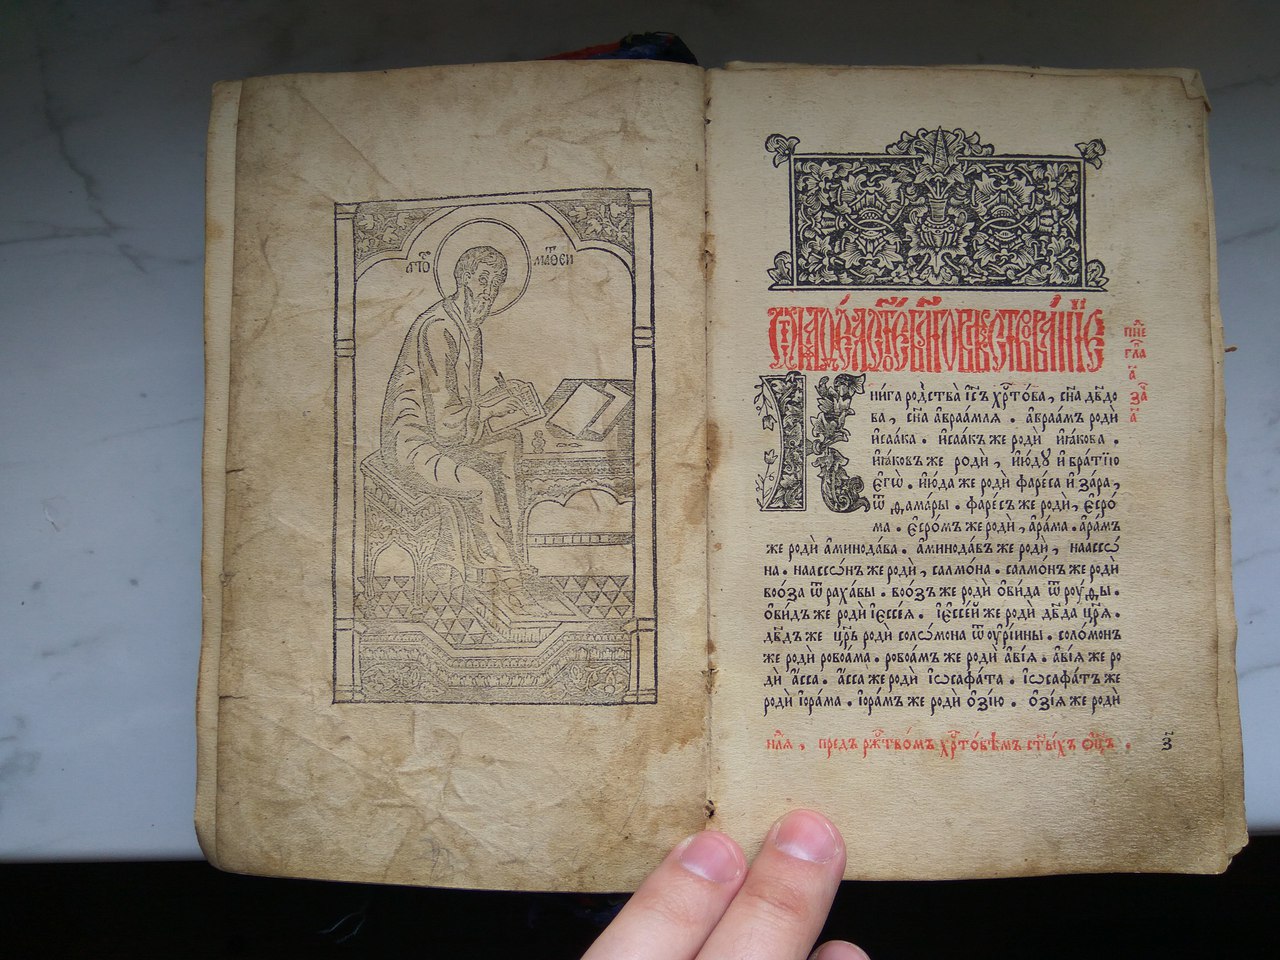 а҆гїо
маѳеи
пнⷣе
гл҃а
а҃
за҃
а҃
нига родства̀ і҆с҃ъ хрⷭ҇то́ва, сн҃а дв҃до
ва, сн҃а а҆враа́мля. а҆враа́мъ роди̂
и҆саа́ка. и҆саа́къ же роди̂ и҆ꙗ́кова.
и҆ꙗ́ковъ же роди̂, и҆ю́дꙋ и҆ бра́тїю
є҆гѡ̀. и҆ю́да же роди̂ фаре́са и҆ за́ра,
ѿ ѳама́ры. фаре́съ же роди̂, є҆сро́
ма. є҆сро́мъ же роди̂, а҆ра́ма. а҆ра́мъ
же роди̂ а҆минода́ва. а҆минода́въ же роди̂, наассѡ́
на. наассѡ́нъ же роди̂, салмо́на. салмо́нъ же роди̂
воо́за ѿ раха́вы. воо́зъ же роди̂ ѻ҆ви́да ѿ роу́ѳы.
ѻ҆ви́дъ же роди̂ і҆єссе́я. і҆єссе́й же роди̂ дв҃да цр҃я̀.
дв҃дъ же цр҃ь роди̂ соломо́на ѿ оу҆рі́ины. соломо́нъ
же роди̂ ровоа́ма. ровоа́мъ же роди̂ а҆ві́я. а҆ві́я же ро
ди̂ а҆́сса. а҆́сса же роди̂ і҆ѡсафа́та. і҆ѡсафа́тъ же
роди̂ і҆ора́ма. і҆ора́мъ же роди̂ ѻ҆зі́ю. ѻ҆зі́я же роди̂
нлⷣя, предъ ржⷭ҇тво́мъ хрⷭ҇то́вѣмъ ст҃ы́хъ ѻ҆ц҃ъ.
з҃